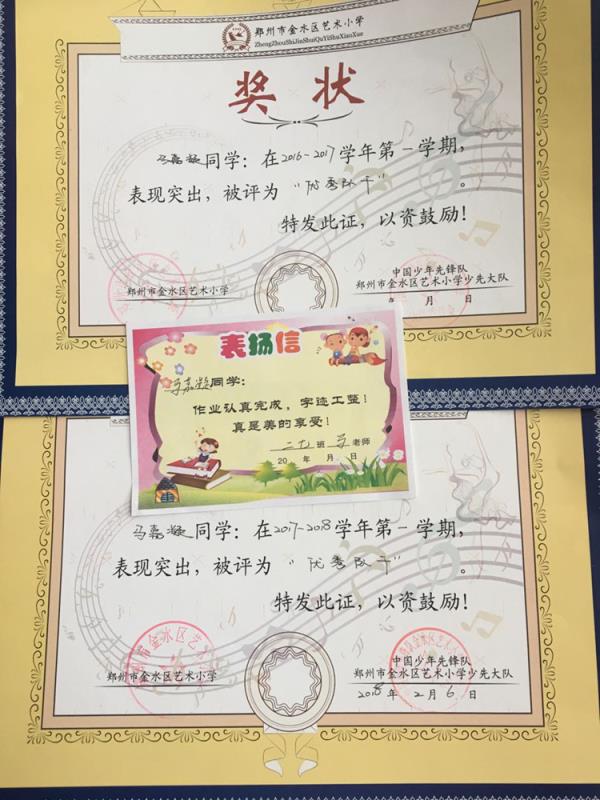 郑州市金水区艺术小学
ZhengZhouShiJinShuiQuYiShuXiaoXue
奖状
马嘉凝同学：在2016-2017学年第一学期，
表现突出，被评为“优秀队干”。
特发此证，以资鼓励！
郑州市金水区艺术小学
中国少年先锋队
郑州市金水区艺术小学少先大队
年 月 日
表扬信
马嘉凝同学：
作业认真完成，字迹工整！
真是美的享受！
二七班 老师
20 年 月 日
马嘉凝同学：在2017-2018学年第一学期，
表现突出，被评为“优秀队干”。
特发此证，以资鼓励！
郑州市金水区艺术小学
中国少年先锋队
郑州市金水区艺术小学少先大队
2018年 2月 6日